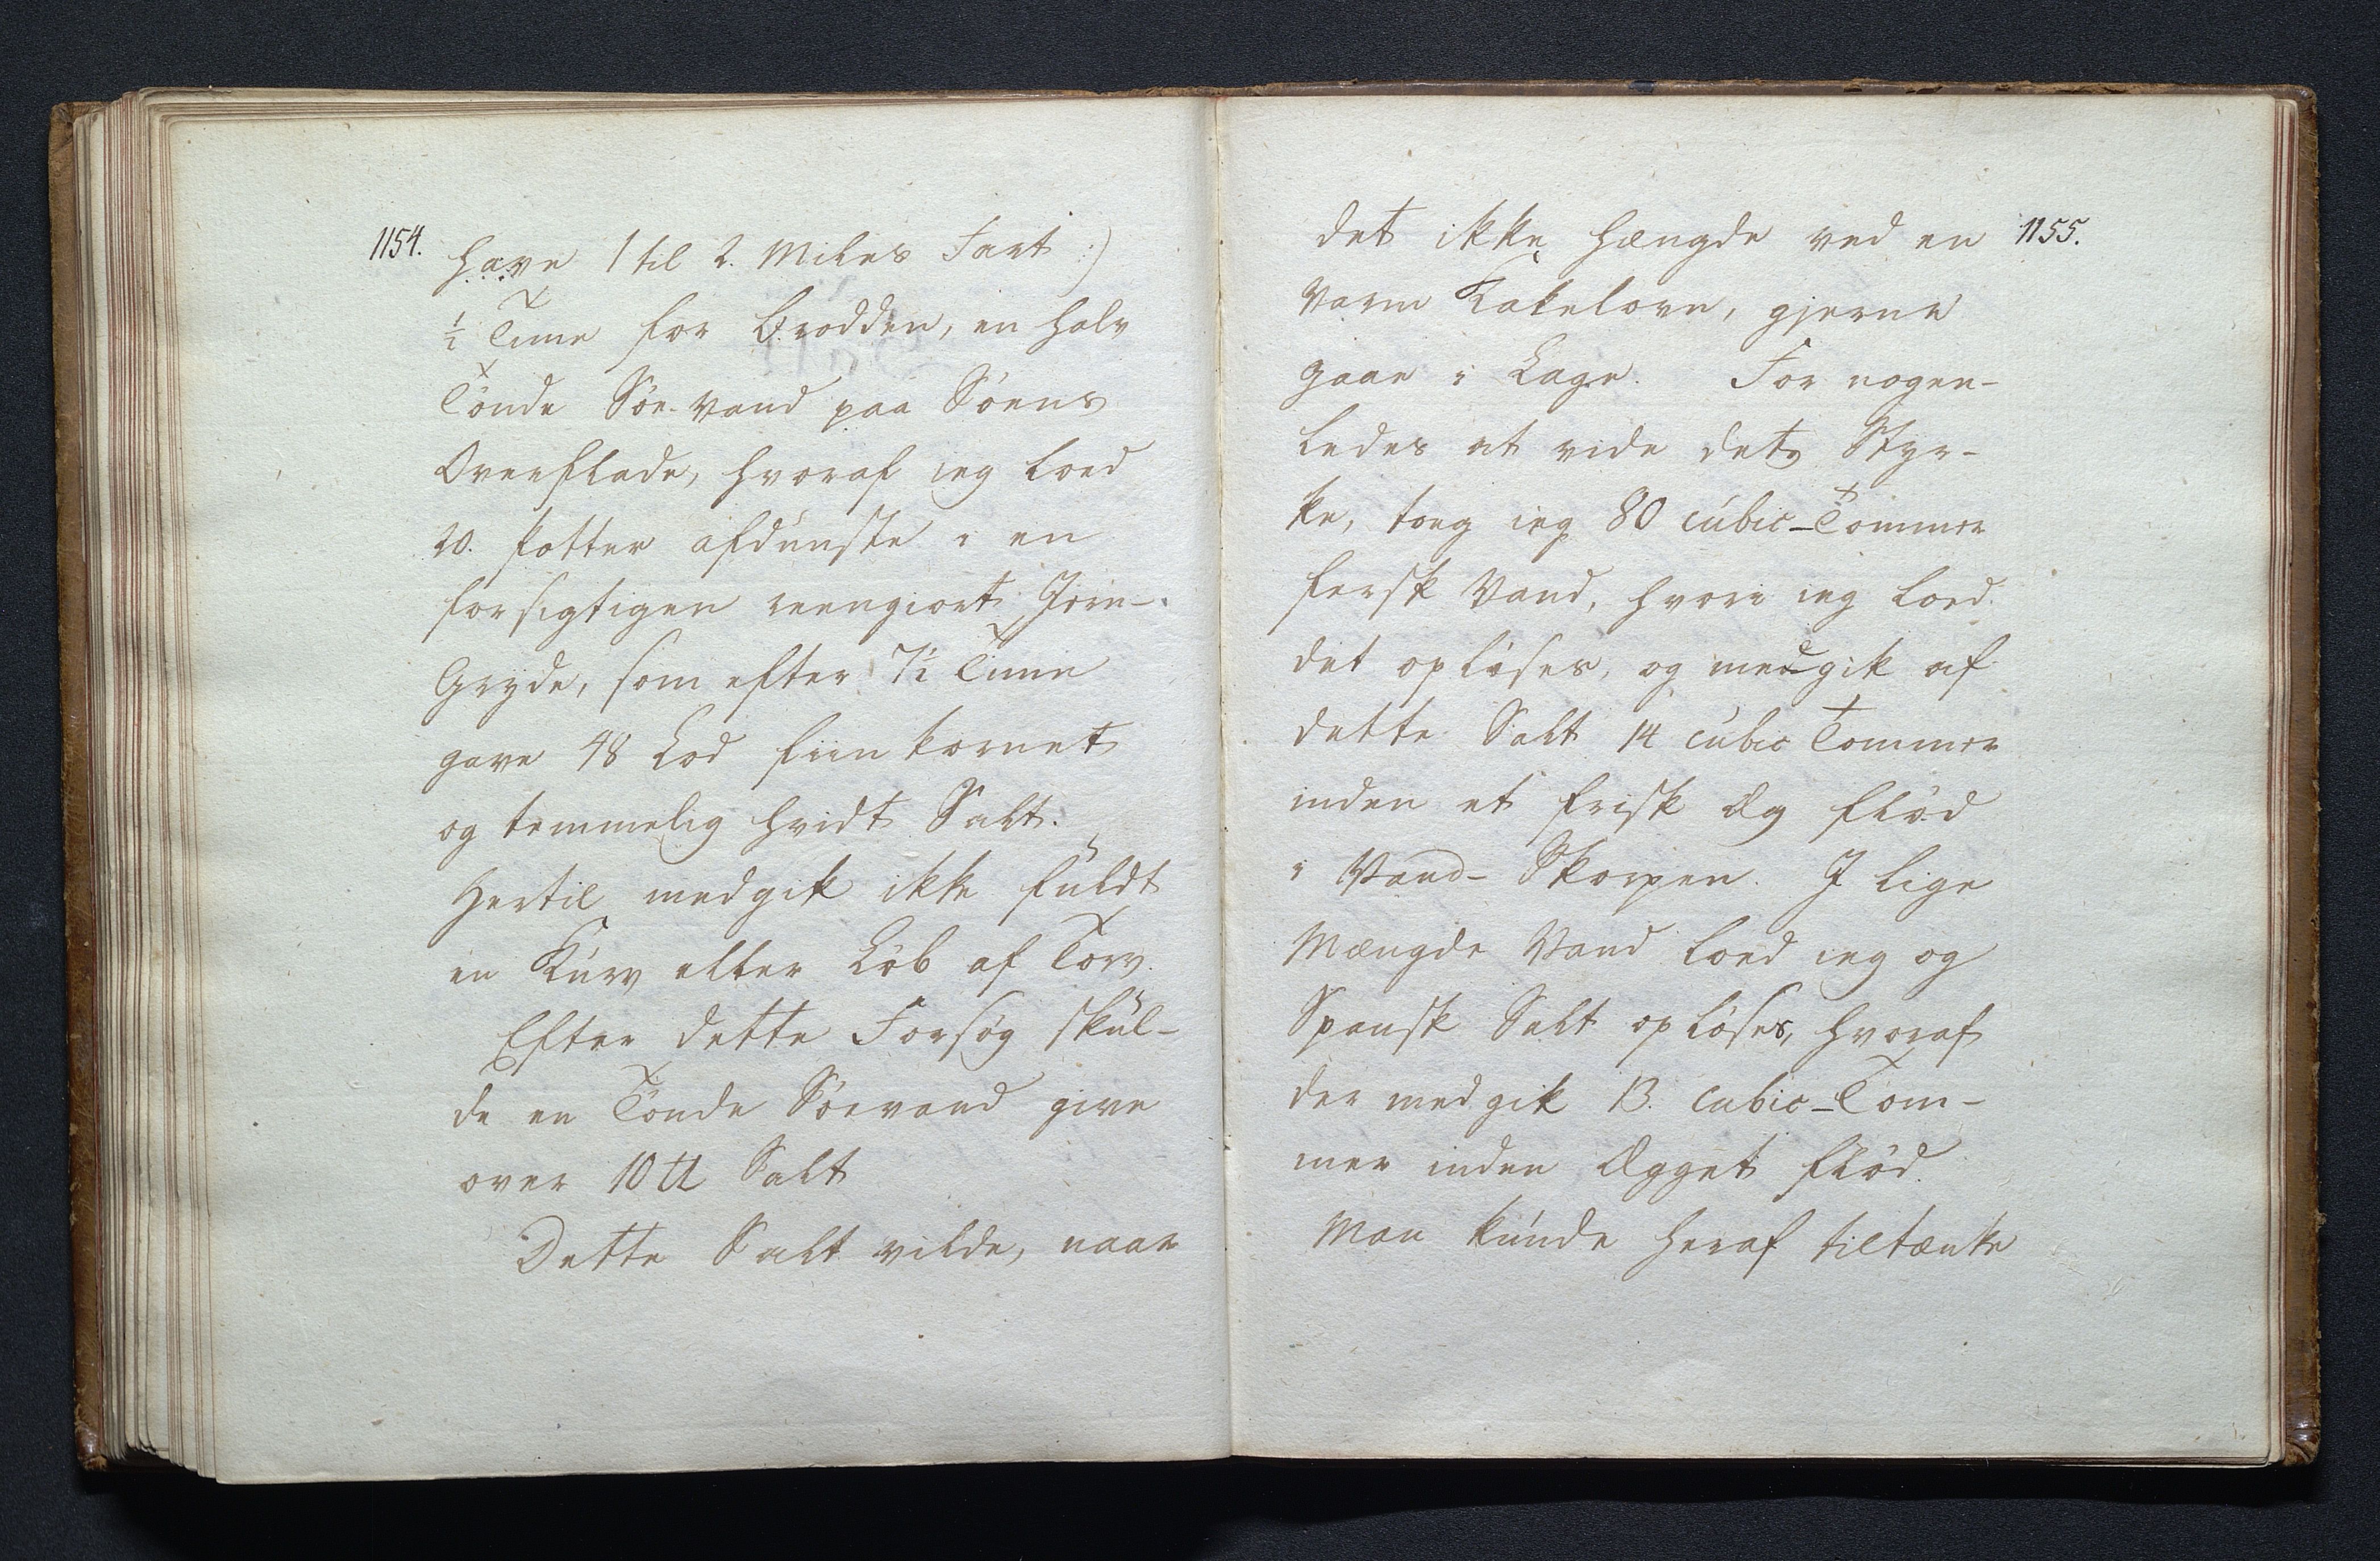 1154.
have 1 til 2. Miles Fart :)
½ Time for Brodden, en halv
Tönde Söe-Vand paa Söens
Overflade, hvoraf ieg loed
20. Potter afdunste i en
forsigtigen reengiort Jern-
Gryde, som efter 7½ Time
gave 48 Lod fiin kornet
og temmelig hvidt Salt.
Hertil medgik ikke fuldt
en Kurv eller Löb af Torv.
Efter dette Forsög skul-
de en Tönde Söevand give
over 10 ℔ Salt
Dette Salt vilde, naar
1155.
det ikke hængde ved en
Varm Kakelovn, gjerne
gaae i Lage. For nogen-
ledes at vide dets Styr-
ke, toeg ieg 80 cubic-Tommer
fersk Vand, hvori ieg loed
det oplöses, og medgik af
dette Salt 14 cubic Tommer
inden et frisk Æg flöd
i Vand-Skorpen. I lige
Mængde Vand loed ieg og
Spansk Salt oplöses, hvoraf
der medgik 13. cubic-Tom-
mer inden Ægget flöd.
Man kunde heraf tiltænke